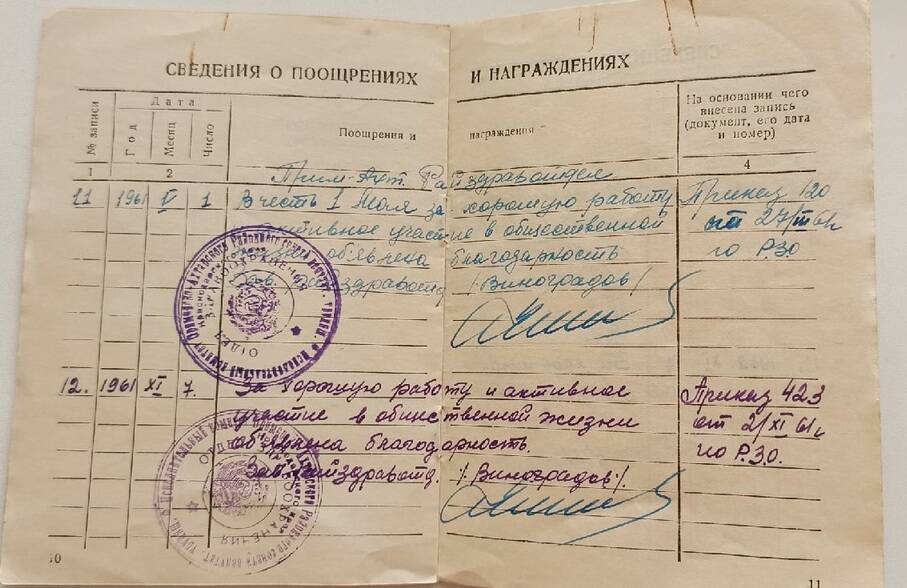 СВЕДЕНИЯ О ПООЩРЕНИЯХ И НАГРАЖДЕНИЯХ
№ записи
Дата
Год
Месяц
Число
Поощрения и награждения
На основании чего
внесена запись
(документ, его дата
и номер)
1 2 4
Прим-Ахт. Райздравотдел
11 1961 V 1 В честь 1 Мая за хорошую работу Приказ 120
активное участие в общественной от 27/ 61г
объявлена благодарность по РЗО.
Зав. Райздравотд. /Виноградов/
12. 1961 XI 7. За хорошую работу и активное Приказ 423
участие в общественной жизни от 2/XI 61г
объявлена благодарность. по РЗО.
Зав. Райздравотд. /Виноградов/.
10
11